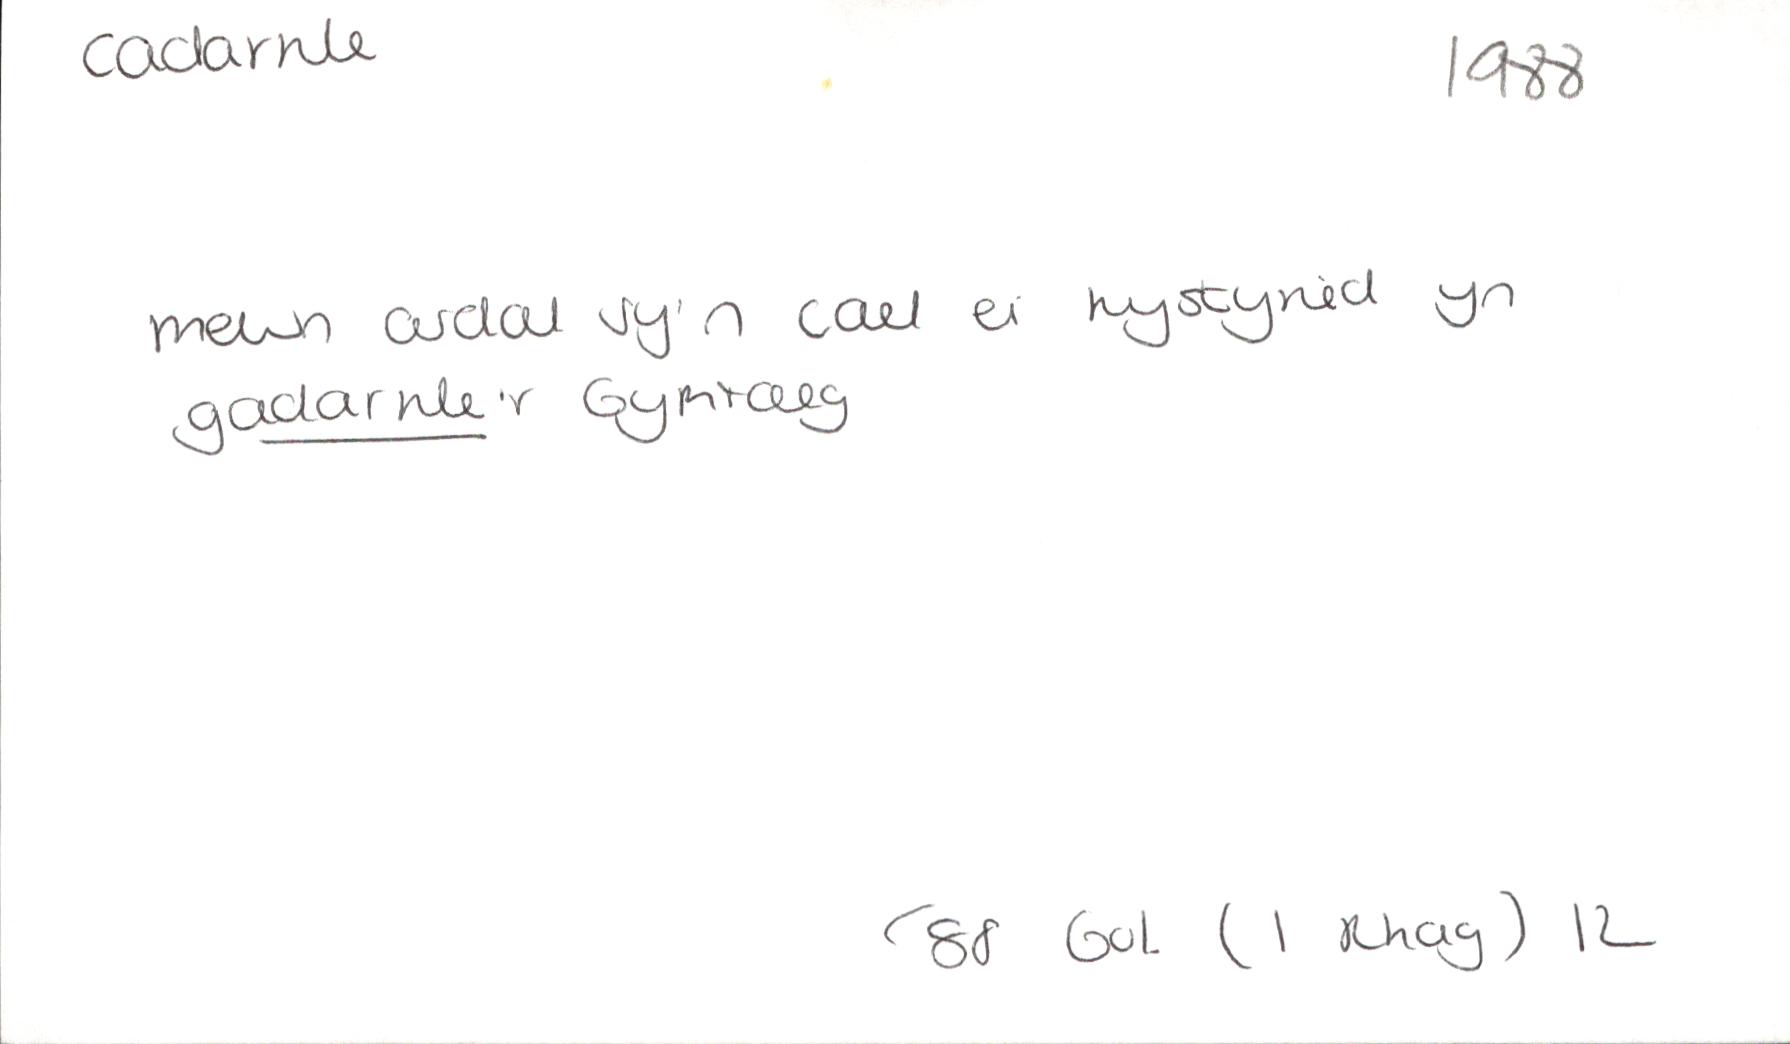 cadarnle
1988
mewn ardal sy'n cael ei hystyried yn
gadarnle'r Gymraeg
'88 Gol (1 Rhag) 12